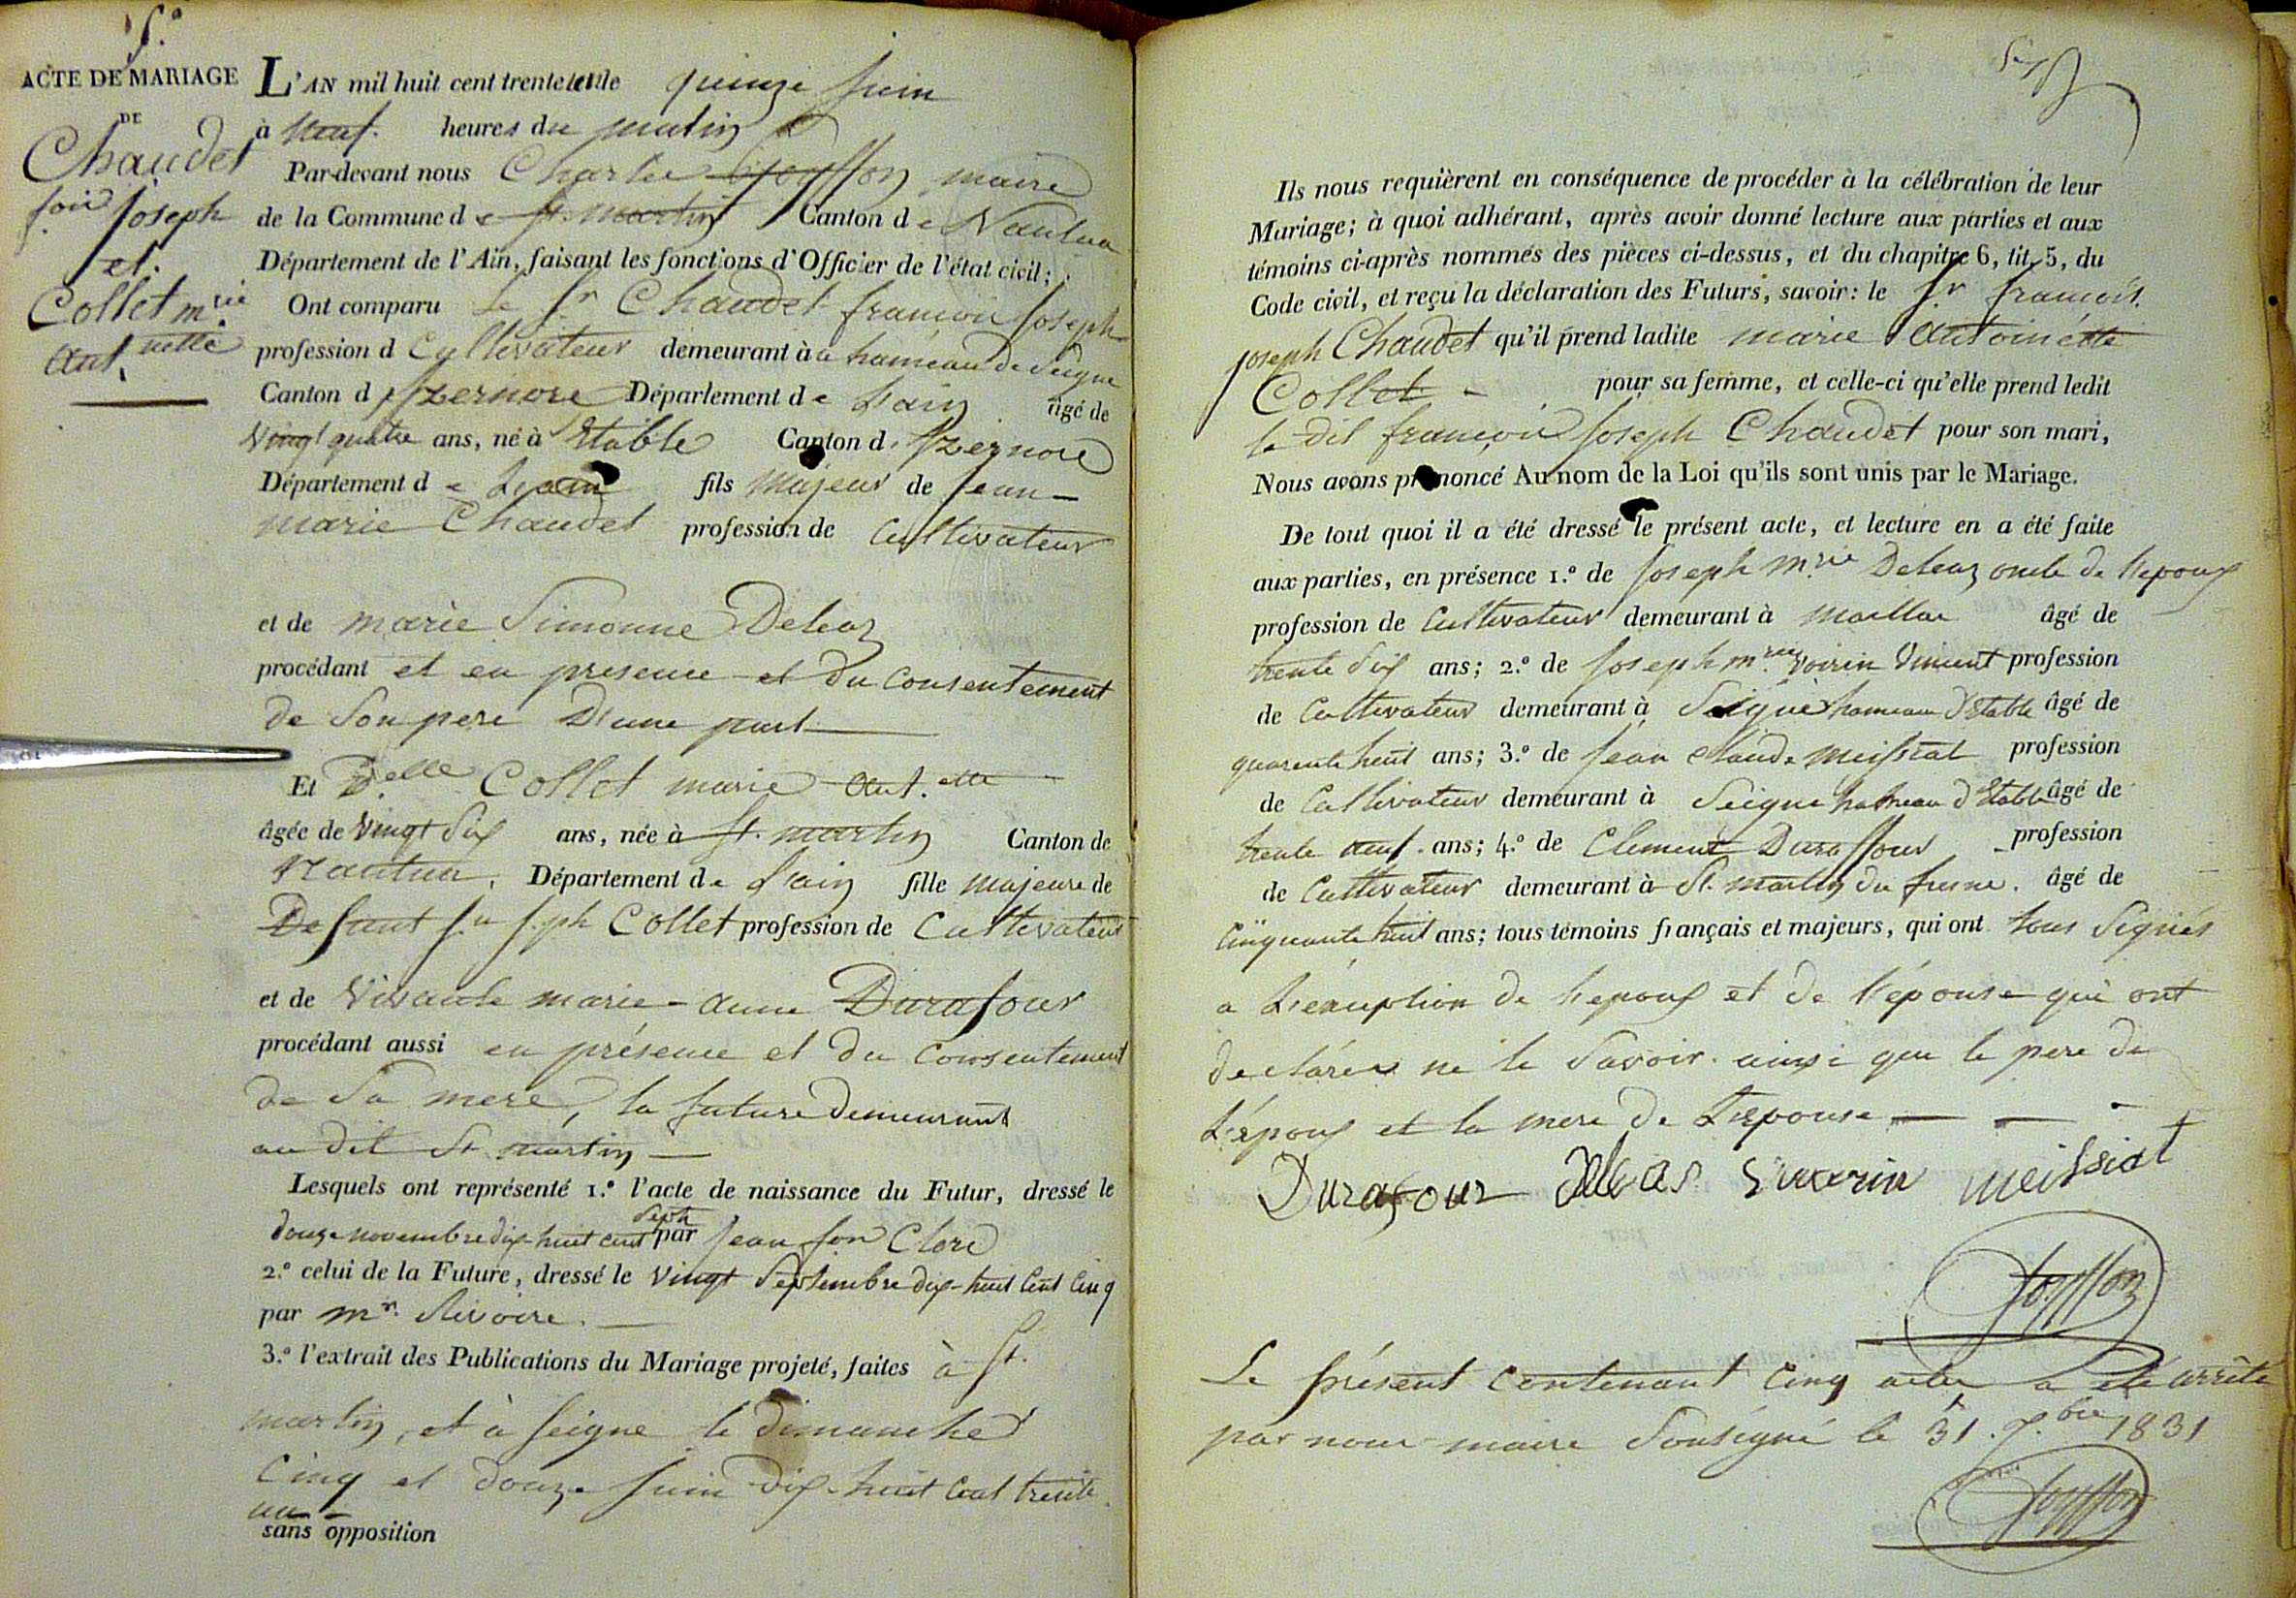 5.e
ACTE DE MARIAGE
DE
Chaudet
fois Joseph
et.
Collet mrie
Ant.nette
L'AN mil huit cent trente et un le quinze juin
à neuf. heures du matin
Par-devant nous Charles Goyffon maire
de la Commune de St. martin Canton de Nantua
Département de l'Ain, faisant les fonctions d'Officier de l'état civil;
Ont comparu le Sr Chaudet françois Joseph
profession d Cultivateur demeurant à hameau de Seigne
Canton d'Izernore Département de l'ain âgé de
vingt quatre ans, né à Etable Canton d'Izernore
Département de L'ain fils majeur de jean-
marie Chaudet profession de Cultivateur
et de marie Simonne Deleaz
procédant et en presence et du consentement
de Son pere D'une part
Et D.elle Collet marie Ant.ette
âgée de vingt six ans, née à St. martin Canton de
Nantua, Département de L'ain fille majeure de
Defunt Collet profession de Cultivateur
et de vivante marie-anne Durafour
procédant aussi en présence et du consentement
de Sa mere, la future demeurant
au dit St martin
Lesquels ont représenté 1.º l'acte de naissance du Futur, dressé le
douze novembre dix-huit cent sept par Jean Clerc
2.º celui de la Future, dressé le vingt Septembre dix-huit Cent Cinq
par mr.
3.º l'extrait des Publications du Mariage projeté, faites à St.
martin, et à Seigne le dimanche
Cinq et douze juin dix-huit Cent trente
un
sans opposition
Ils nous requièrent en conséquence de procéder à la célébration de leur
Mariage; à quoi adhérant, après avoir donné lecture aux parties et aux
témoins ci-après nommés des pièces ci-dessus, et du chapitre 6, tit. 5, du
Code civil, et reçu la déclaration des Futurs, savoir: le Sr françois
joseph Chaudet qu'il prend ladite marie antoinette
Collet pour sa femme, et celle-ci qu'elle prend ledit
le dit françois Joseph Chaudet pour son mari,
Nous avons prononcé Au nom de la Loi qu'ils sont unis par le Mariage.
De tout quoi il a été dressé le présent acte, et lecture en a été faite
aux parties, en présence 1.º de Joseph mrie Deleaz oncle de l'epoux
profession de Cultivateur demeurant à maillac âgé de
trente six ans; 2.º de Joseph mrie Vincent profession
de Cultivateur demeurant à Seigne hameau d'Etable âgé de
quarente huit ans; 3.º de Jean Claude meissiat profession
de Cultivateur demeurant à Seigne hameau d'Etable âgé de
trente neuf. ans; 4.º de Clement Duraffour profession
de Cultivateur demeurant à St. martin du fresne. âgé de
Cinquante huit ans; tous témoins français et majeurs, qui ont tous Signés
a L'exception de l'epoux et de l'épouse qui ont
declarés ne le Savoir. ainsi que le pere de
L'époux et la mere de L'epouse
Durafour Deleas meissiat
Goyffon
Le présent contenant Cinq actes a été arrêté
par nous maire Sousigné le 31. 1831
Goyffon